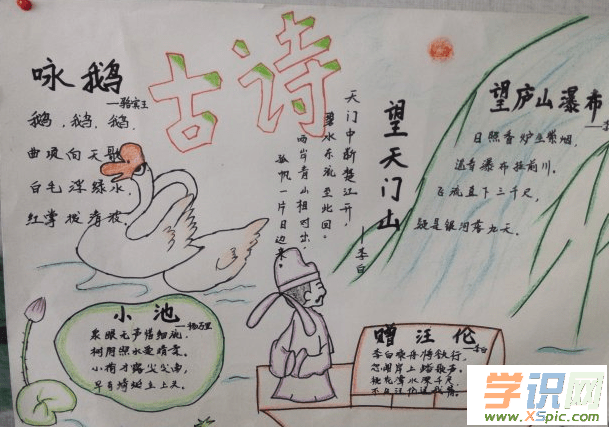 古诗
咏鹅
—骆宾王
鹅,鹅,鹅,
曲项向天歌
白毛浮绿水,
红掌拨清波。
望天门山
—李白
天门中断楚江开,
碧水东流至此回。
两岸青山相对出,
孤帆一片日边来。
望庐山瀑布
—李
日照香炉生紫烟,
遥看瀑布挂前川。
飞流直下三千尺,
疑是银河落九天。
小池
—杨万里
泉眼无声惜细流,
树阴照水爱晴柔。
小荷才露尖尖角,
早有蜻蜓立上头。
赠汪伦
—李白
李白乘舟将欲行,
忽闻岸上踏歌声。
桃花潭水深千尺
不及汪伦送我情。
学识网
www.XSpic.com